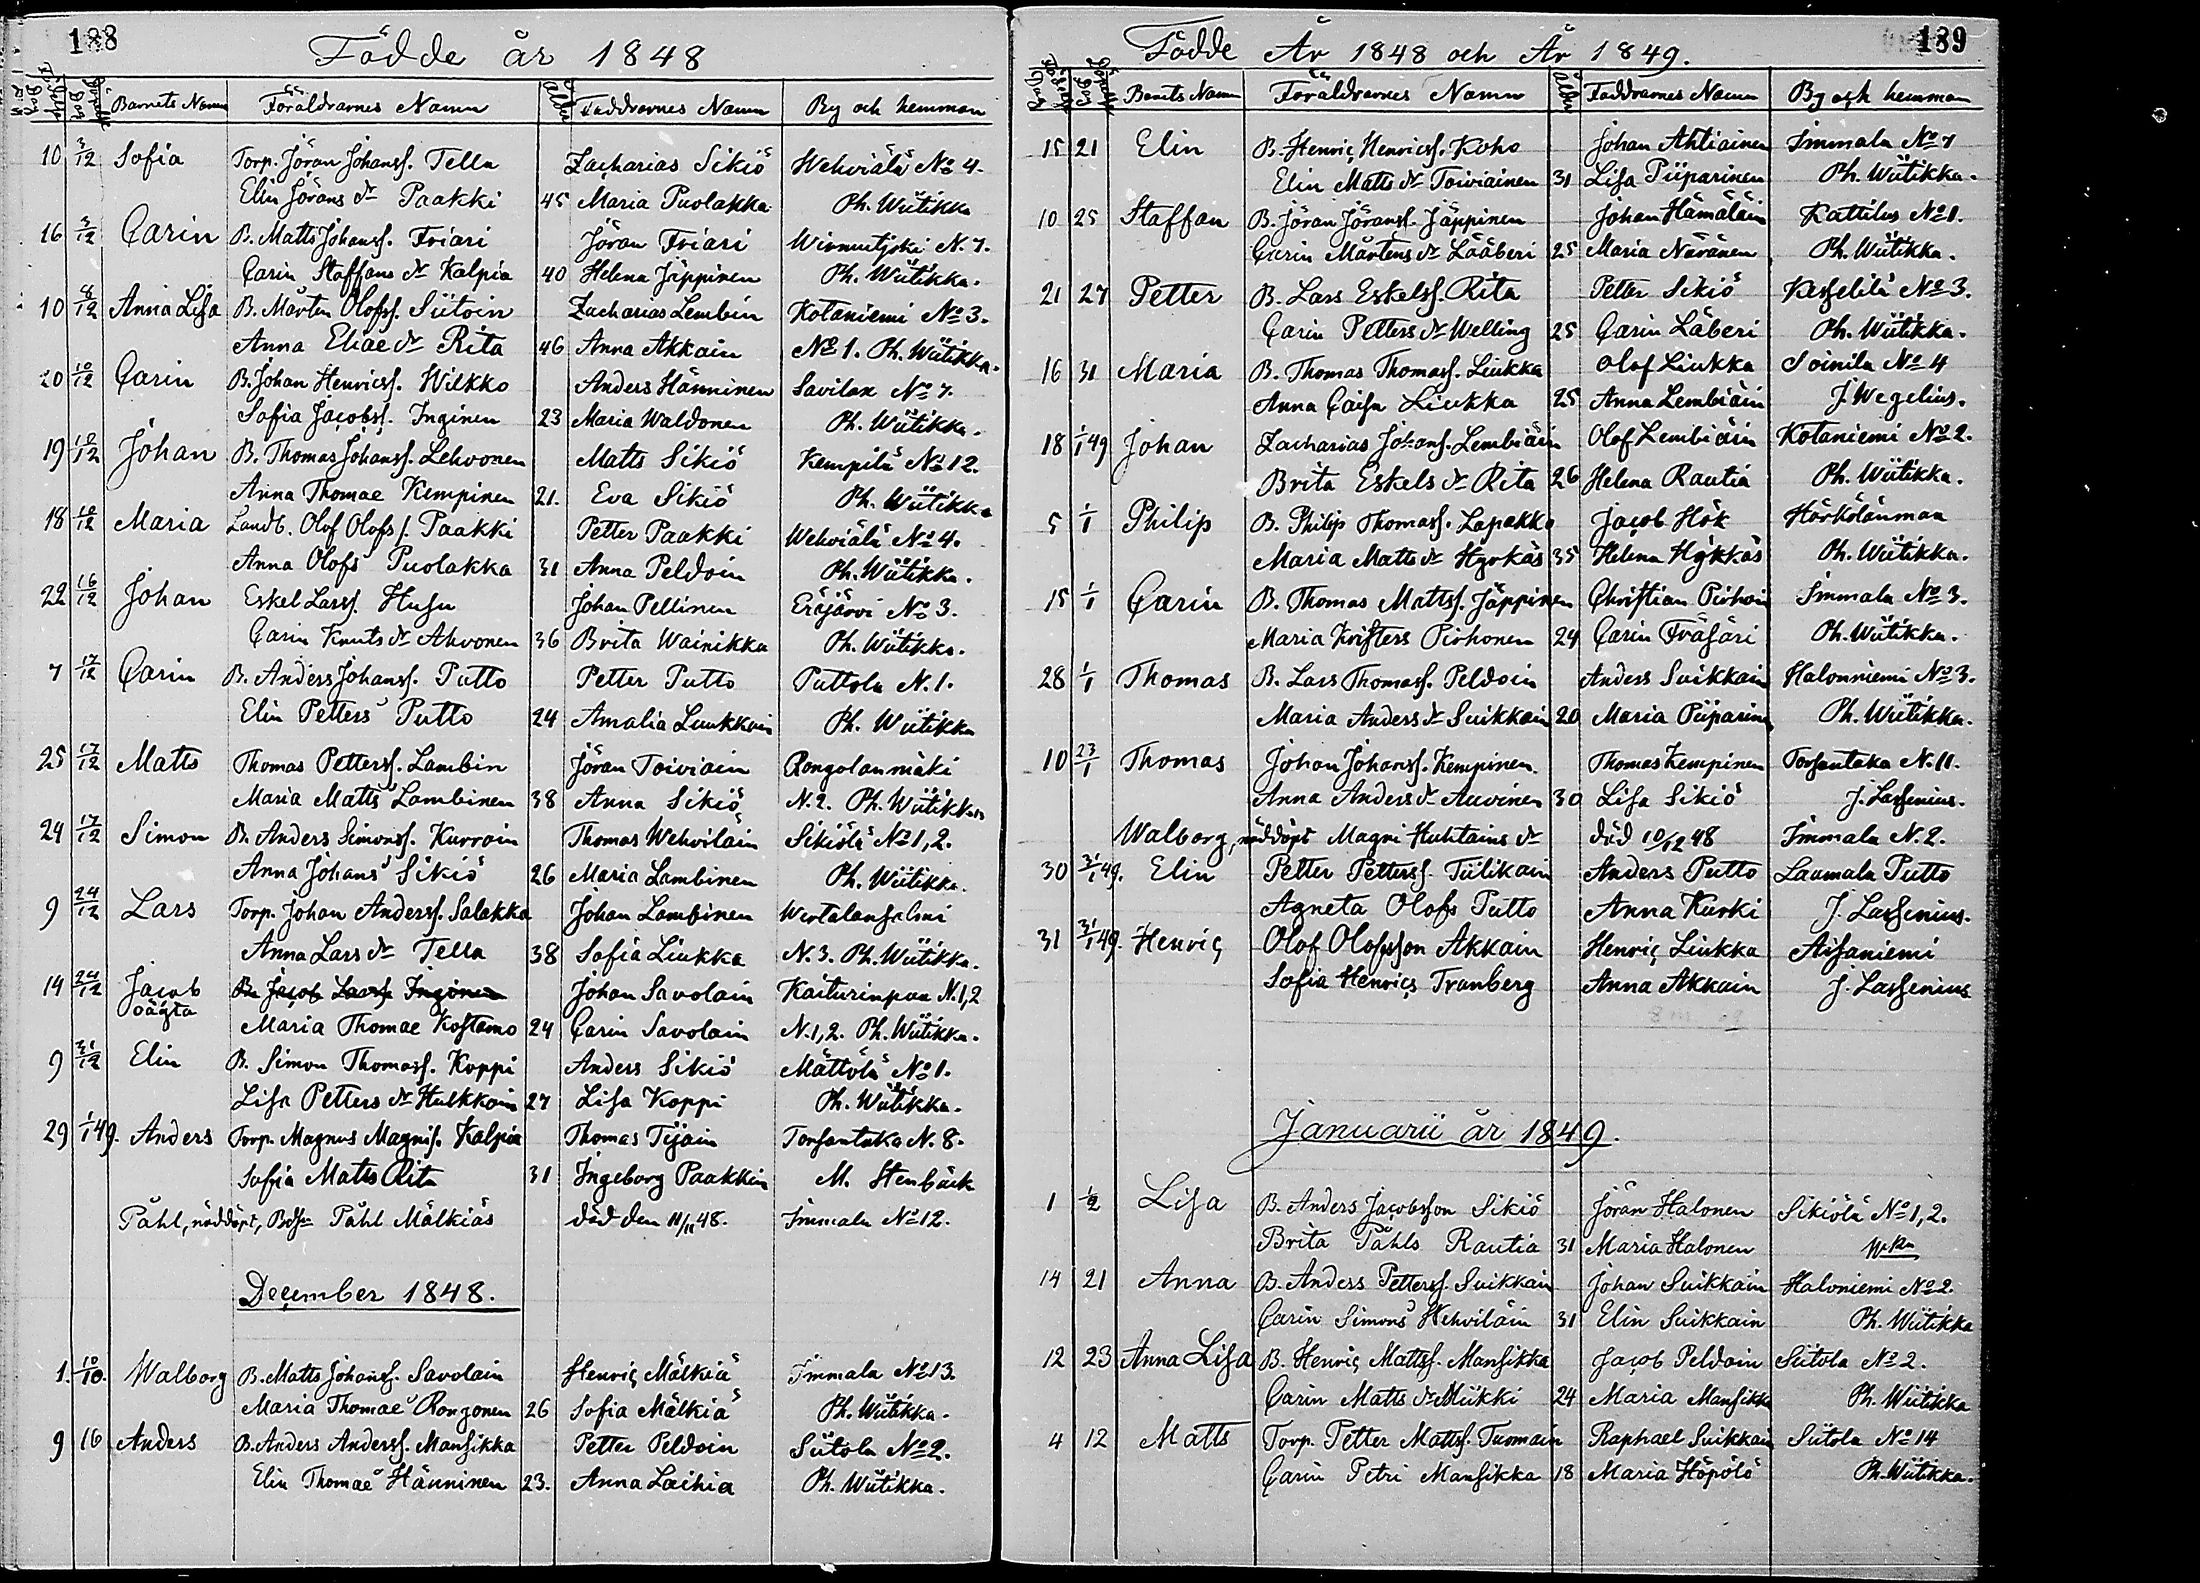 188
Födde år 1848
Barnets Namn Föräldrarnes Namn Ålder Faddrarnes Namn By och hemman
10 3/12 Sofia Torp. Jöran Johanss. Tella Zacharias Sikiö Wehviälä No 4.
Elin Jörans dr Paakki 45 Maria Puolakka Ph. Wiitikka
16 3/12 Carin B. Matts Johanss. Friari Jöran Friari Wirmutjoki N. 7.
Carin Staffans dr Kalpia 40 Helena Jäppinen Ph. Wiitikka.
10 8/12 Anna Lisa B. Mårten Olofss. Siitoin Zacharias Lembin Kotaniemi No 3.
Anna Eliae dr Rita 46 Anna Akkain No 1. Ph. Wiitikka.
20 10/12 Carin B. Johan Henricss. Wilkko Anders Hänninen Savilax No 7.
Sofia Jacobss. Inginen 23 Maria Waldonen Ph. Wiitikka.
19 10/12 Johan B. Thomas Johanss. Lehvonen Matts Sikiö Kempilä No 12.
Anna Thomae Kempinen 21. Eva Sikiö Ph. Wiitikka
18 10/12 Maria Landb. Olof Olofss. Paakki Petter Paakki Wehviälä No 4.
Anna Olofs Puolakka 31 Anna Peldoin Ph. Wiitikka.
22 16/12 Johan Eskel Larss. Husu Johan Pellinen Eräjärvi No 3.
Carin Knuts dr Ahvonen 36 Brita Wainikka Ph. Wiitikka.
7 17/12 Carin B. Anders Johanss. Putto Petter Putto Puttola N. 1.
Elin Petters Putto 24 Amalia Luukkain Ph. Wiitikka
25 17/12 Matts Thomas Petterss. Lambin Jöran Toiviain Rongolanmäki
Maria Matts Lambinen 38 Anna Sikiö N. 2. Ph. Wiitikka
24 17/12 Simon B. Anders Simonss. Kurroin Thomas Wehviläin Sikiölä No 1, 2.
Anna Johans Sikiö 26 Maria Lambinen Ph. Wiitikka.
9 24/12 Lars Torp. Johan Anderss. Salakka Johan Lambinen Wirtalansalmi
Anna Lars dr Tella 38 Sofia Liukka N. 3. Ph. Wiitikka.
14 24/12 Jacob B. Jacob Larss. Inginen Johan Savolain Kaiturinpaa N. 1, 2
oägta Maria Thomae Kostamo 24 Carin Savolain N. 1, 2. Ph. Wiitikka.
9 31/12 Elin B. Simon Thomass. Koppi Anders Sikiö Mättölä No 1.
Lisa Petters dr Hulkkoin 27 Lisa Koppi Ph. Wiitikka.
29 1/1 49. Anders Torp. Magnus Magnis. Kalpia Thomas Tijain Torsantaka N. 8.
Sofia Matts Rita 31 Ingeborg Paakkin M. Stenbäck
Påhl, nöddöpt, Påhl Mälkiäs död den 11/11 48. Immala No 12.
December 1848.
1. 10/10. Walborg B. Matts Johanss. Savolain Henric Mälkiä Immala No 13.
Maria Thomae Rongonen 26 Sofia Mälkiä Ph. Wiitikka.
9 16 Anders B. Anders Anderss. Mansikka Petter Peldoin Siitola No 2.
Elin Thomae Hänninen 23. Anna Laihia Ph. Wiitikka.
189
Födde År 1848 och År 1849.
Barnets Namn Föräldrarnes Namn Ålder Faddrarnes Namn By och hemman
15 21 Elin B. Henric Henricss. Koho Johan Ahtiainen Immala No 7
Elin Matts dr Toiviainen 31 Lisa Piiparinen Ph. Wiitikka.
10 25 Staffan B. Jöran Jöranss. Jäppinen Johan Hämäläin Kattilus No 1.
Carin Mårtens dr Lääberi 25 Maria Näränen Ph. Wiitikka.
21 27 Petter B. Lars Eskelss. Rita Petter Sikiö Kesselilä No 3.
Carin Petters dr Welling 25 Carin Läberi Ph. Wiitikka.
16 31 Maria B. Thomas Thomass. Liukka Olof Liukka Soinila No 4
Anna Caisa Liukka 25 Anna Lembiäin J. Wegelius.
18 1/1 49 Johan Zacharias Johanss. Lembiäin Olof Lembiäin Kotaniemi No 2.
Brita Eskels dr Rita 26 Helena Rautia Ph. Wiitikka.
5 1/1 Philip B. Philip Thomass. Lapakko Jacob Hök Härkölänmaa
Maria Matts dr Hyrkäs 35 Helena Hykkäs Ph. Wiitikka.
15 1/1 Carin B. Thomas Mattss. Jäppinen Christian Pirhoin Immala No 3.
Maria Kristers Pirhonen 24 Carin Fräsäri Ph. Wiitikka.
28 1/1 Thomas B. Lars Thomass. Peldoin Anders Suikkain Halonniemi No 3.
Maria Anders dr Suikkain 20 Maria Piiparinen Ph. Wiitikka.
10 23/1 Thomas Johan Johanss. Kempinen. Thomas Kempinen Torsantaka N. 11.
Anna Anders dr Auvinen 30 Lisa Sikiö J. Lassenius.
Walborg, nöddöpt Magni Huhtains dr död 10/12 48 Immala N. 2.
30 31/1 49. Elin Petter Petterss. Tiilikain Anders Putto Laumala Putto
Agneta Olofs Putto Anna Kurki J. Lassenius.
31 31/1 49. Henric Olof Olofsson Akkain Henric Liukka Aisaniemi
Sofia Henrics Tranberg Anna Akkain J. Lassenius
Januarii år 1849.
1 1/2 Lisa B. Anders Jacobsson Sikiö Jöran Halonen Sikiölä No 1, 2.
Brita Påhls Rautia 31 Maria Halonen
14 21 Anna B. Anders Petterss. Suikkain Johan Suikkain Haloniemi No 2.
Carin Simons Wehviläin 31 Elin Suikkain Ph. Wiitikka
12 23 Anna Lisa B. Henric Mattss. Mansikka Jacob Peldoin Siitola No 2.
Carin Matts dr Miikki 24 Maria Mansikka Ph. Wiitikka
4 12 Matts Torp. Petter Mattss. Tuomain Raphael Suikkain Siitola No 14
Carin Petri Mansikka 18 Maria Höpölö Ph. Wiitikka.